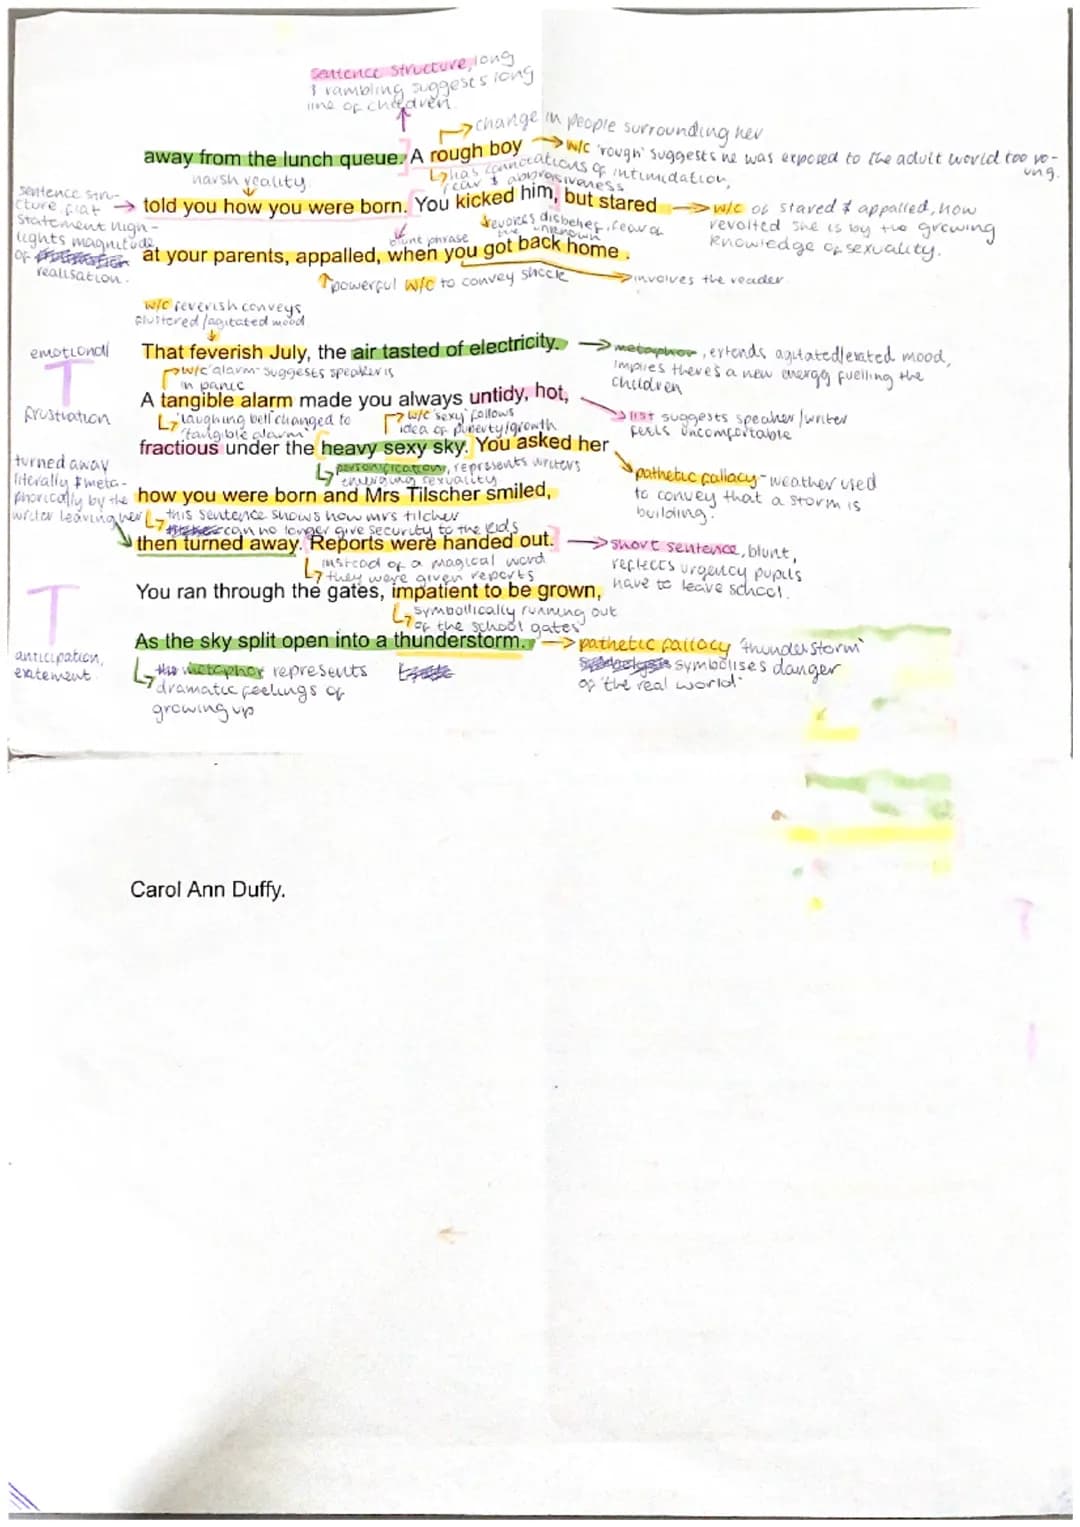 sentence structure, long
& rambling suggests long
line of children.
change in people surrounding her
away from the lunch queue. A rough boy
w/c 'rough' suggests he was exposed to the adult world too yo-
ung.
harsh reality
has connotations of intimidation,
fear & abbrasiveness
sentence stru-
cture flat
statement high-
lights magnitude
of
realisation.
told you how you were born. You kicked him, but stared
w/c of stared & appalled, how
revolted she is by the growing
knowledge of sexuality.
blunt phrase
evokes disbelief, fear of
the unknown
at your parents, appalled, when you got back home.
powerful w/c to convey shock
involves the reader
w/c feverish conveys
flustered/agitated mood
emotional
T
frustration
That feverish July, the air tasted of electricity.
metaphor, extends agitated/elated mood,
implies there's a new energy fuelling the
children
w/c 'alarm' suggests speaker is
in panic
A tangible alarm made you always untidy, hot,
list suggests speaker/writer
feels uncomfortable
'laughing bell' changed to
'tangible alarm'
w/c 'sexy' follows
idea of puberty/growth
fractious under the heavy sexy sky. You asked her
personification, represents writers
emerging sexuality
pathetic fallacy - weather used
to convey that a storm is
building.
turned away
literally & meta-
phorically by the
writer leaving her
how you were born and Mrs Tilscher smiled,
this sentence shows how mrs tilcher
can no longer give security to the kids
then turned away. Reports were handed out.
short sentence, blunt,
reflects urgency pupils
have to leave school.
instead of a magical word
they were given reports
You ran through the gates, impatient to be grown,
symbolically running out
of the school gates
T
anticipation,
exatement.
As the sky split open into a thunderstorm.
pathetic fallacy 'thunderstorm'
symbolises danger
of 'the real world'
metaphor represents
dramatic feelings of
growing up
Carol Ann Duffy.